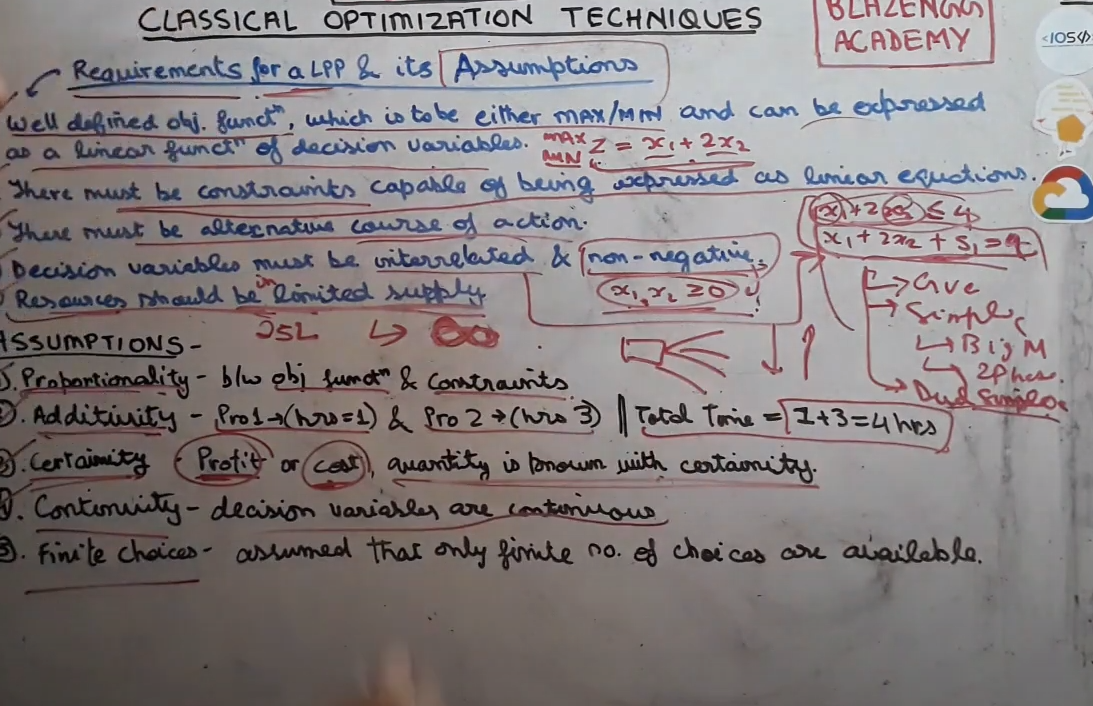 CLASSICAL OPTIMIZATION TECHNIQUES
BLAZENGG
ACADEMY
<105
Requirements for a LPP & its Assumptions
Well defined obj. functⁿ, which is to be either MAX/MIN and can be expressed
as a linear functⁿ of decision variables. MAX MIN Z = x₁ + 2x₂
There must be constraints capable of being expressed as linear equations.
There must be alternative course of action.
x₁ + 2x₂ ≤ 4
x₁ + 2x₂ + S₁ = 4
Decision variables must be interrelated & non-negative
Resources should be in limited supply
x₁, x₂ ≥ 0
25L → ∞
→ Gve
→ Simplex
→ Big M
→ 2Phas.
→ Dual Simplex
ASSUMPTIONS -
①. Proportionality - b/w obj functⁿ & constraints
②. Additivity - Pro1→(hrs=1) & Pro 2→(hrs 3) || Total Time = 1+3=4 hrs
③. Certainity Profit or cost, quantity is known with certainity.
④. Continuity - decision variables are continuous
⑤. Finite choices - assumed that only finite no. of choices are available.